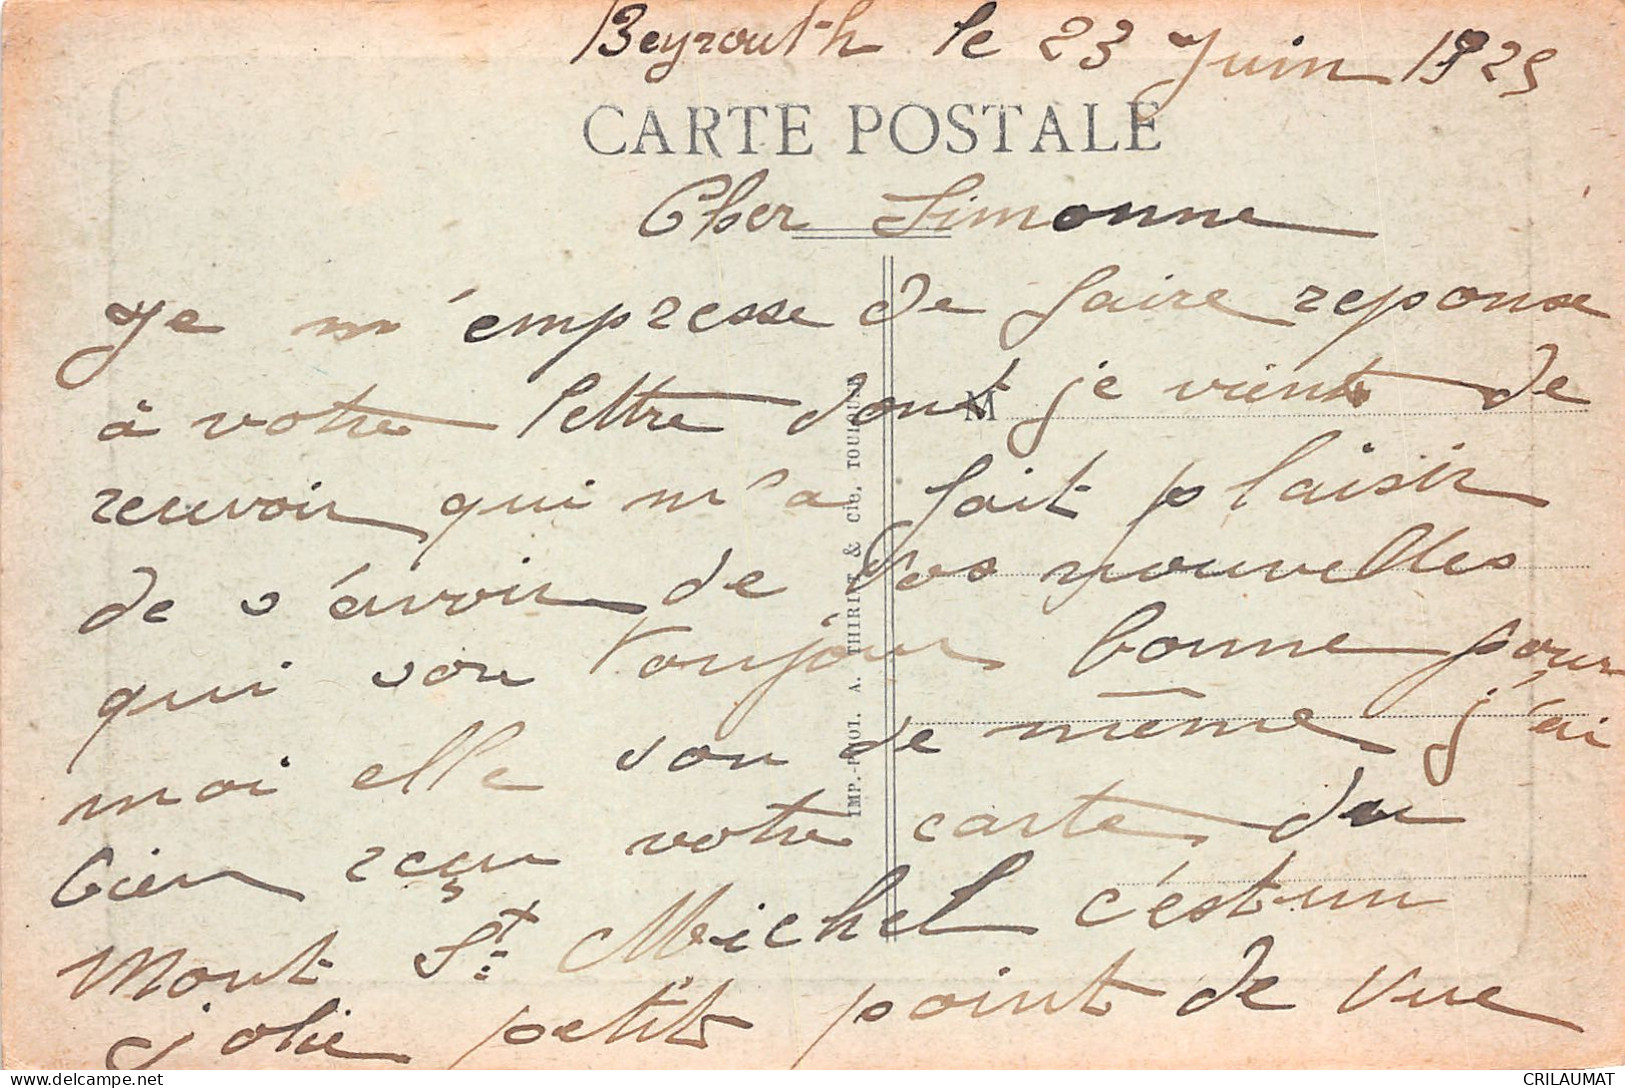 Beyrouth le 23 Juin 1925
CARTE POSTALE
Cher Simonne
Je m'empresse de faire reponse
à votre lettre dont je vients de
recuvoir qui m'a fait plaisir
de s'avoir de vos nouvelles
qui son toujour bonne pour
moi elle son de même j'ai
bien reçu votre carte du
Mont St. Michel c'est un
jolie petits point de vue
M
IMP.-PHOT. A. THIRIET & Cie. TOULOUSE
CRILAUMAT